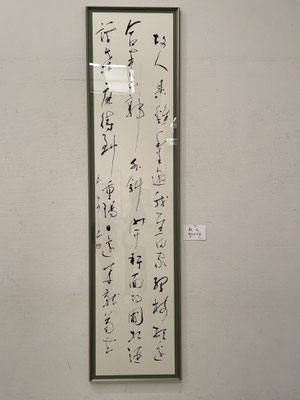 故人具雞黍邀我至田家綠樹村邊
合青山郭外斜開軒面場圃把酒
話桑麻待到重陽日還來就菊花